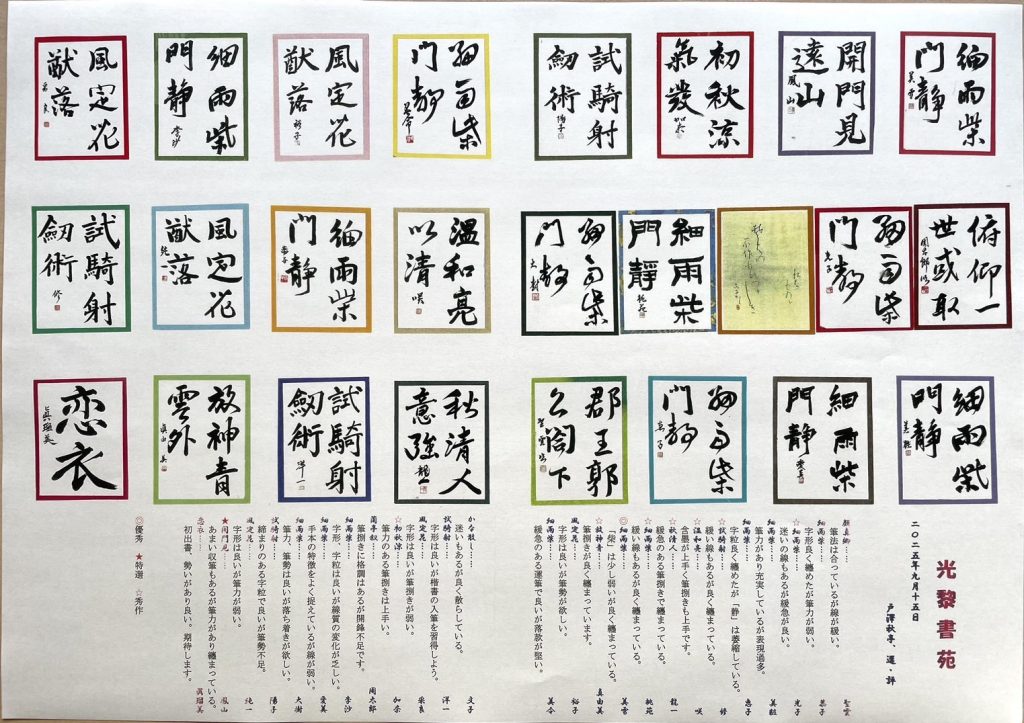 細雨柴
門靜
美雪
開門見
遠山
鳳山
初秋涼
氣發
試騎射
劍術
陽子
細雨柴
門靜
風定花
猷落
裕子
細雨柴
門靜
李沙
風定花
猷落
采良
俯仰一
世或取
周太郎臨
細雨柴
門靜
光子
細雨柴
門靜
桃苑
細雨柴
門靜
大樹
溫和亮
以清
咲
細雨柴
門靜
恭子
風定花
猷落
純一
試騎射
劍術
修
細雨柴
門靜
美雅
細雨柴
門靜
愛美
細雨柴
門靜
惠子
郡王郭
公閤下
聖雲臨
秋清人
意強
龍一
試騎射
劍術
洋一
放神青
雲外
真由美
恋衣
眞瑠美
光黎書苑
戸澤秋亭、選・評
二〇二五年九月十五日
顔真卿…… 聖雲
筆法は合っているが線が緩い。
細雨柴…… 恭子
字形良く纏めたが筆力が弱い。
☆細雨柴…… 光子
迷いの線もあるが緩急が良い。
細雨柴…… 美雅
筆力があり充実しているが表現過多。
細雨柴…… 惠子
字粒良く纏めたが「静」は萎縮している。
☆試騎射…… 修
緩い線もあるが良く纏まっている。
☆温和亮…… 咲
含墨が上手く筆捌きも上手です。
☆秋清人…… 龍一
緩急のある筆捌きで纏まっている。
☆細雨柴…… 桃苑
緩い線もあるが良く纏まっている。
◎細雨柴…… 美雪
「柴」は少し弱いが良く纏まっている。
☆放神青…… 真由美
筆捌きが良く纏まっています。
風定花…… 裕子
字形は良いが筆勢が欲しい。
細雨柴…… 美令
緩急のある運筆で良いが落款が堅い。
かな散し… 文子
迷いもあるが良く散らしている。
試騎射…… 洋一
字形は良いが楷書の入筆を習得しよう。
風定花…… 采良
字形は良いが筆捌きが弱い。
☆初秋涼…… 加奈
筆力のある筆捌きは上手い。
蘭亭叙…… 周太郎
筆捌きに格調はあるが開鋒不足です。
細雨柴…… 李沙
字形・字粒は良いが線質の変化が乏しい。
細雨柴…… 愛美
手本の特徴をよく捉えているが線が弱い。
細雨柴…… 大樹
筆力、筆勢は良いが落ち着きが欲しい。
試騎射…… 陽子
締まりのある字粒で良いが筆勢不足。
風定花…… 純一
字形は良いが筆力が弱い。
★開門見…… 鳳山
あまい収筆もあるが筆力があり纏まっている。
恋衣…… 眞瑠美
初出書、勢いがあり良い。期待します。
◎優秀 ★特選 ☆秀作